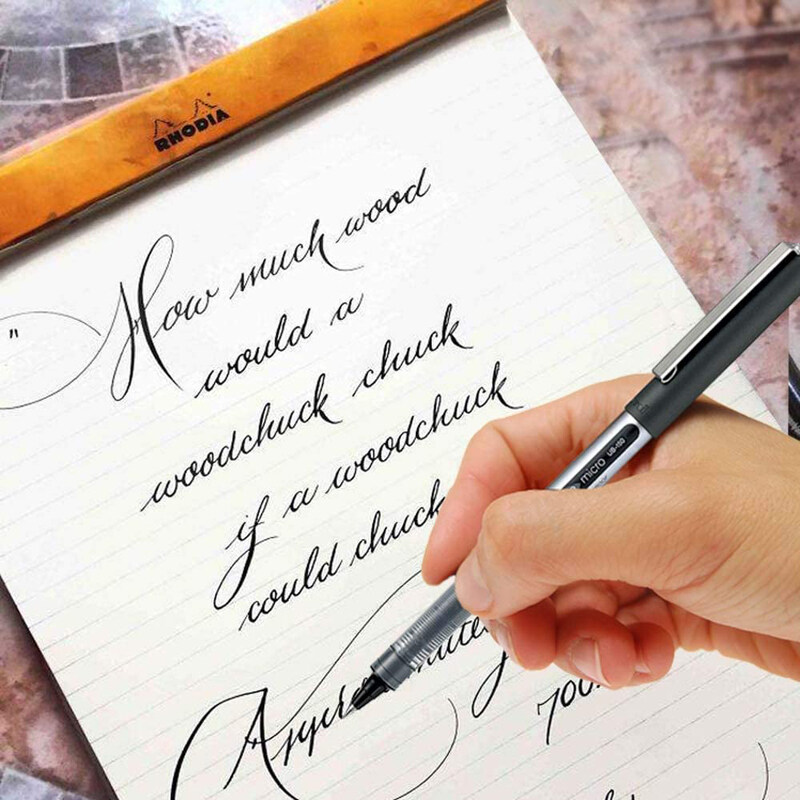 RHODIA
"
How much wood
would a
woodchuck chuck
if a woodchuck
could chuck
micro UB-150